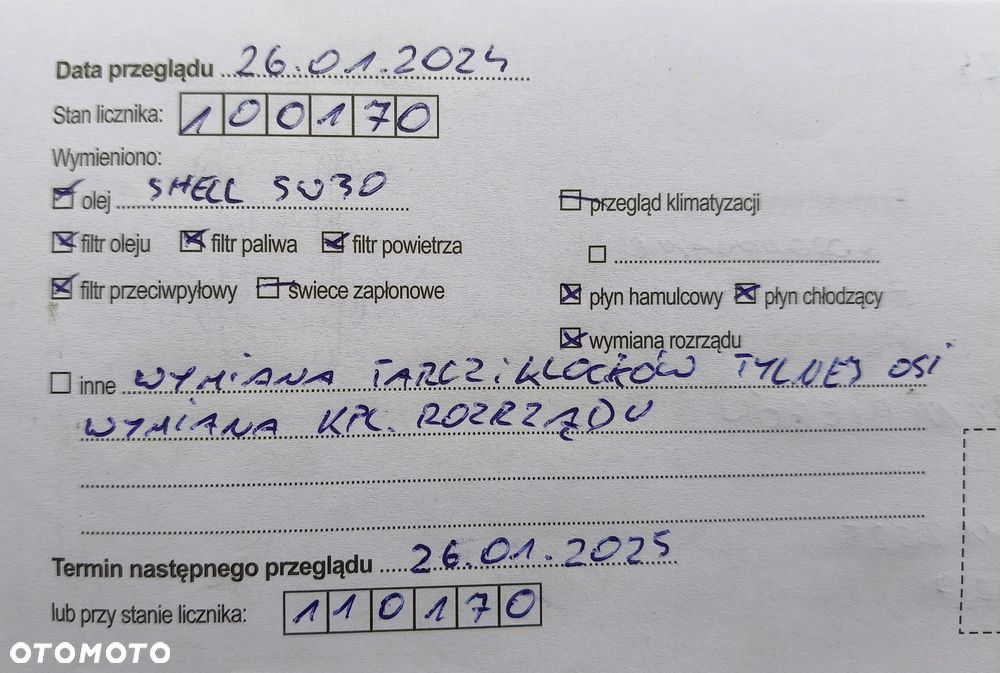 Data przeglądu 26.01.2024
Stan licznika: 100170
Wymieniono:
olej SHELL 5W30
przegląd klimatyzacji
filtr oleju filtr paliwa filtr powietrza
filtr przeciwpyłowy świece zapłonowe
płyn hamulcowy płyn chłodzący
wymiana rozrządu
inne WYMIANA TARCZ i KLOCKÓW TYLNEJ OSI
WYMIANA KPL. ROZRZĄDU
Termin następnego przeglądu 26.01.2025
lub przy stanie licznika: 110170
OTOMOTO